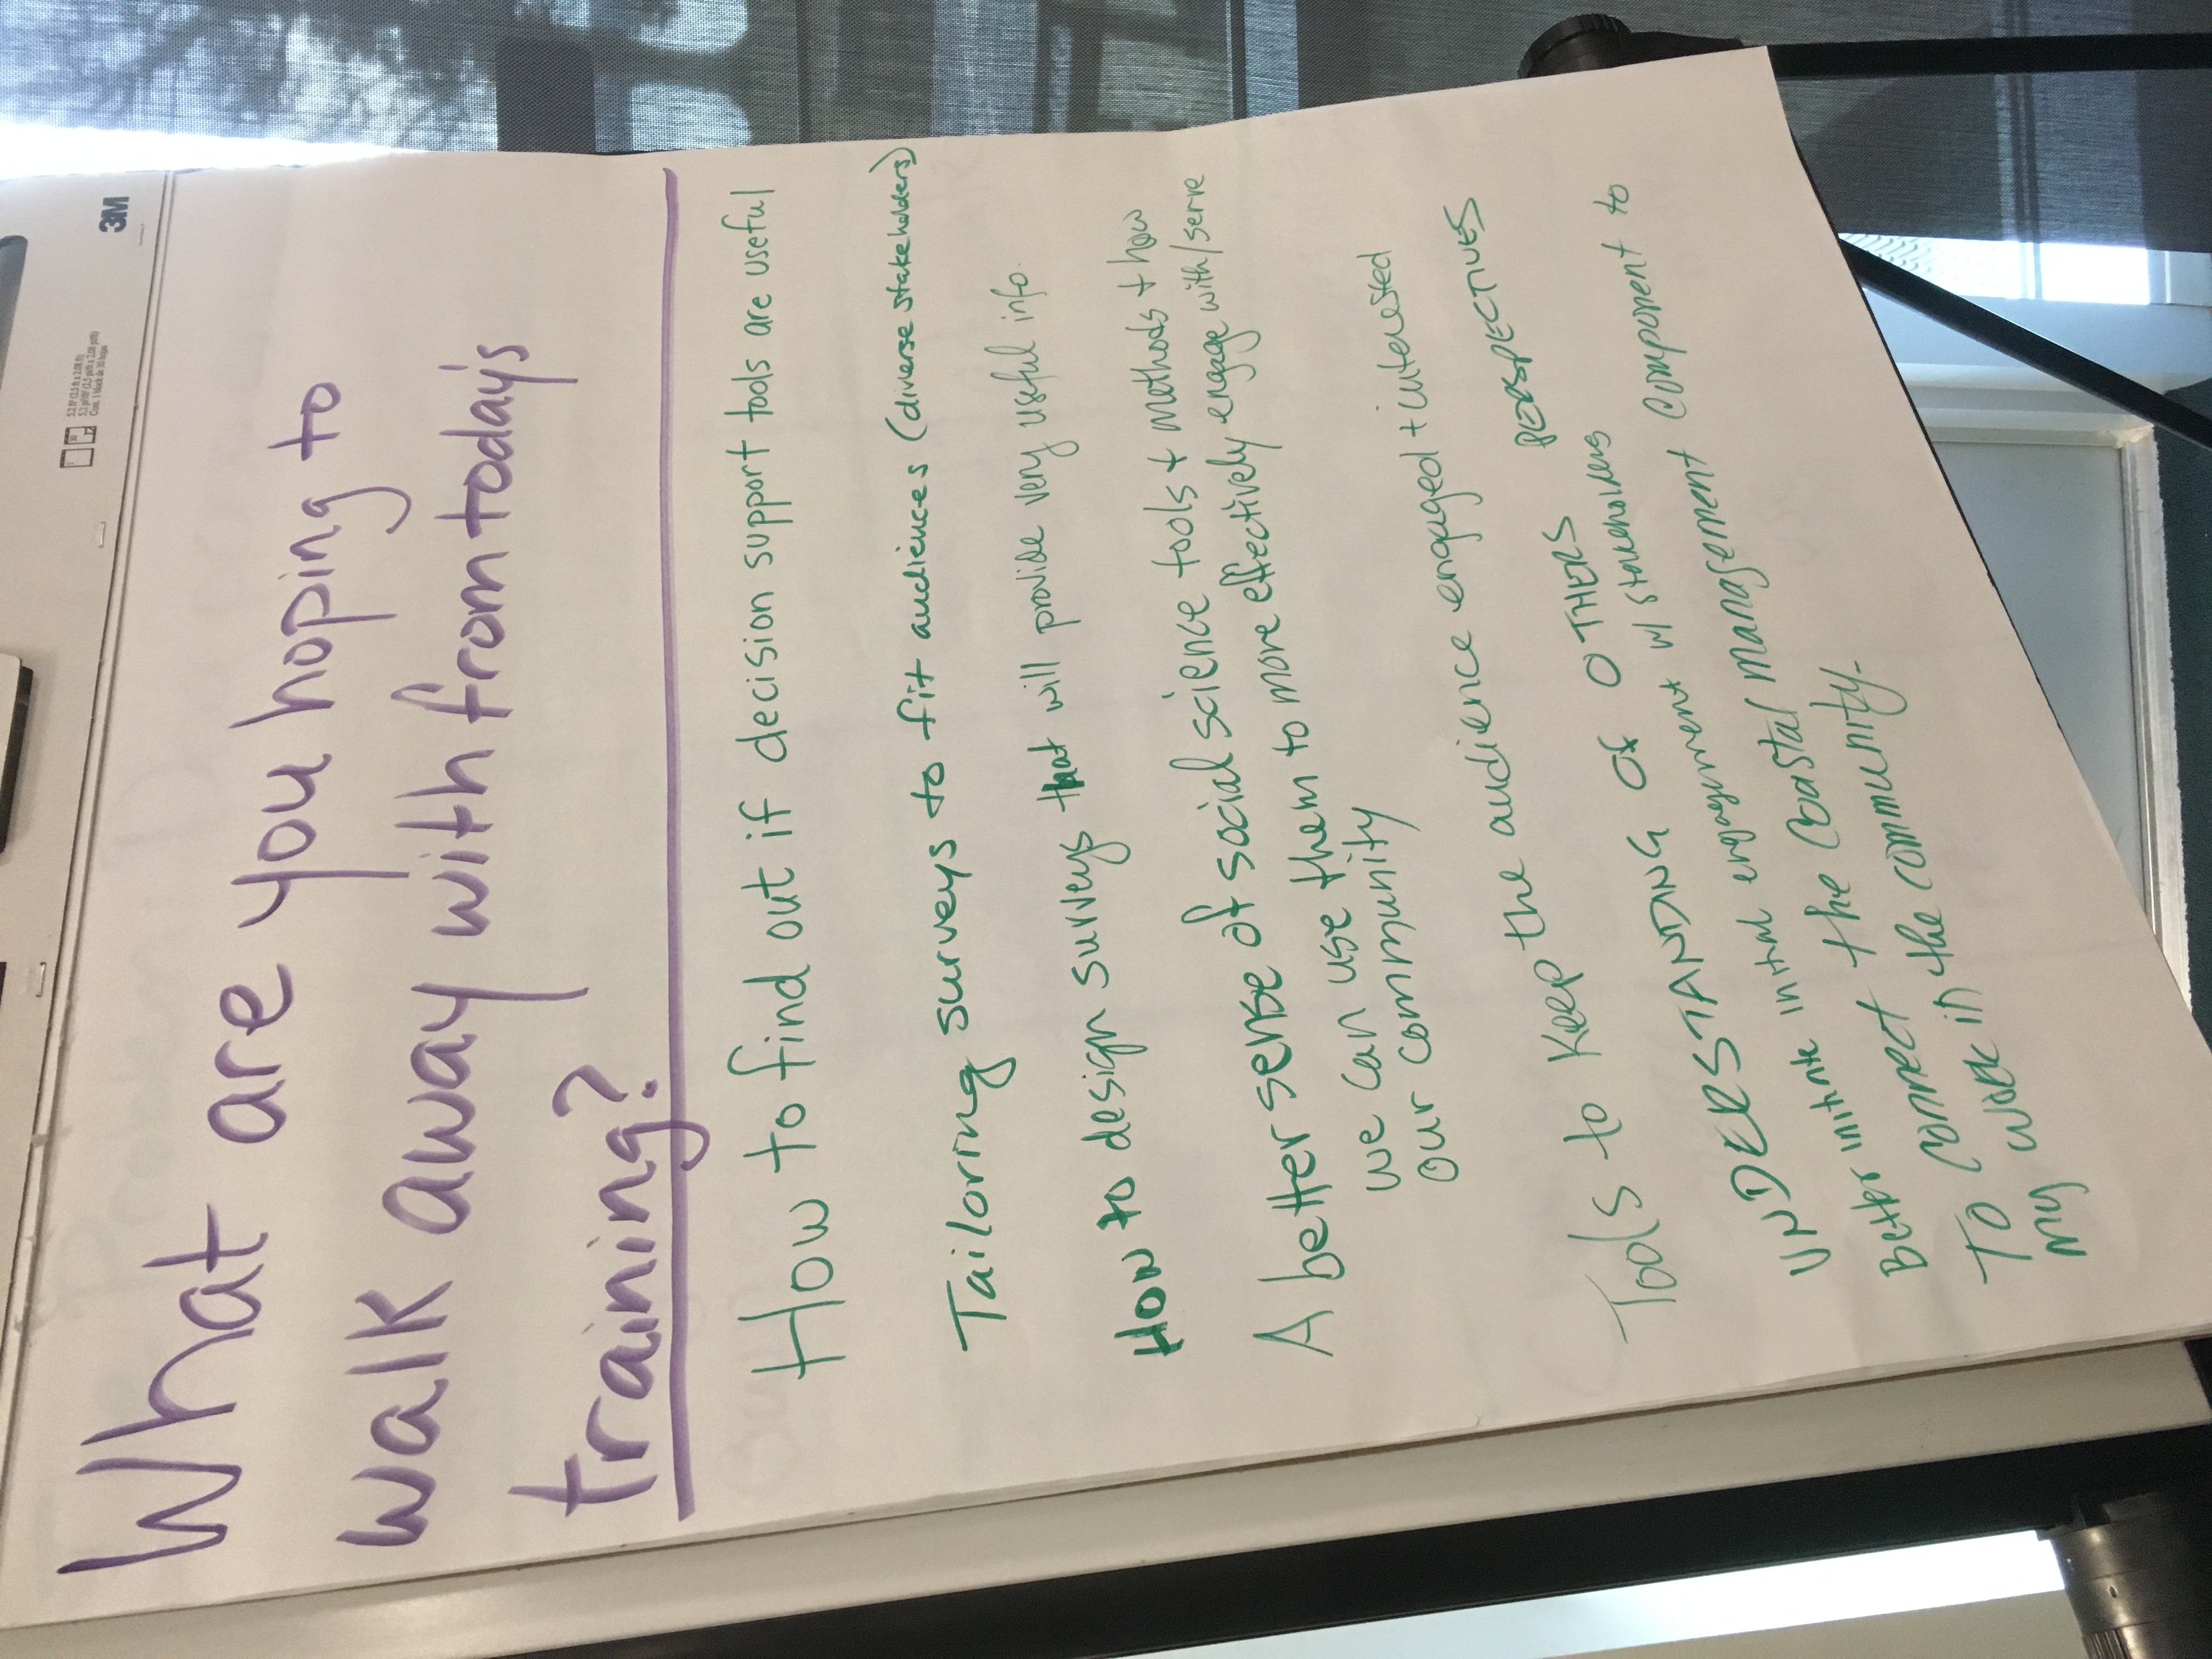 3M
5.2 ft² (2.5 ft x 2.08 ft)
What are you hoping to
walk away with from today's
training?
How to find out if decision support tools are useful
Tailoring surveys to fit audiences (diverse stakeholders)
How to design surveys that will provide very useful info.
A better sense of social science tools + methods + how
we can use them to more effectively engage with/serve
our community
Tools to keep the audience engaged + interested
UNDERSTANDING OF OTHERS PERSPECTIVES
Better initial engagement w/ stakeholders
To connect the coastal management component to
my work in the community.